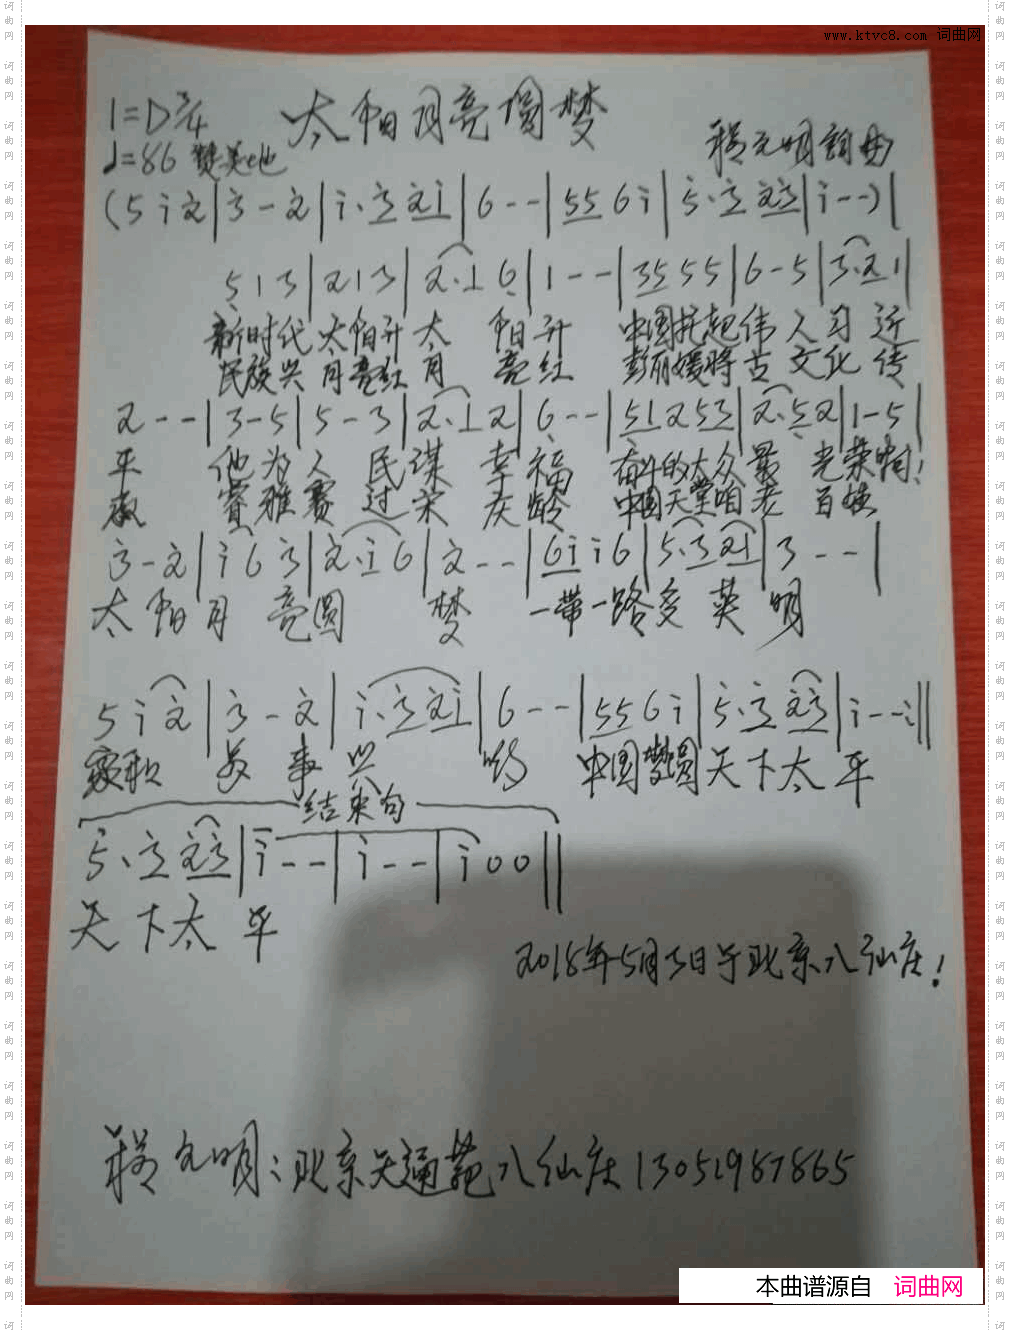 www.ktvc8.com 词曲网
1=D 3/4 太阳月亮圆梦
♩=86 赞美地 程元明詞曲
(5 i 2|3 - 2|i· 3 2 i|6 - -|5 5 6 i|5· 3 2 3|i - -)|
5 1 3|2 1 3|2· 1 6|1 - -|3 5 5 5|6 - 5|3· 2 1|
新时代 太阳升 太 阳升 中国托起伟人习近
民族兴 月亮红 月 亮红 彭丽媛将古文化传
2 - -|3 - 5|5 - 3|2· 1 2|6 - -|5 1 2 5 3|2· 5 2|1 - 5|
平 他为人民谋幸福 奋斗的大众最光荣
承 赛过 中国天堂咱老百姓
3 - 2|i 6 3|2· i 6|2 - -|6 i i 6|5· 3 2 i|3 - -|
太阳月亮圆梦 一带一路多英明
5 i 2|3 - 2|i· 3 2 i|6 - -|5 5 6 i|5· 3 2 3|i - - :||
家和 万事兴 哟 中国梦圆天下太平
结束句
5· 3 2 3|i - -|i - -|i 0 0||
天下太平
2018年5月3日于北京八仙庄!
程元明:北京天通苑八仙庄13051987865
本曲谱源自 词曲网